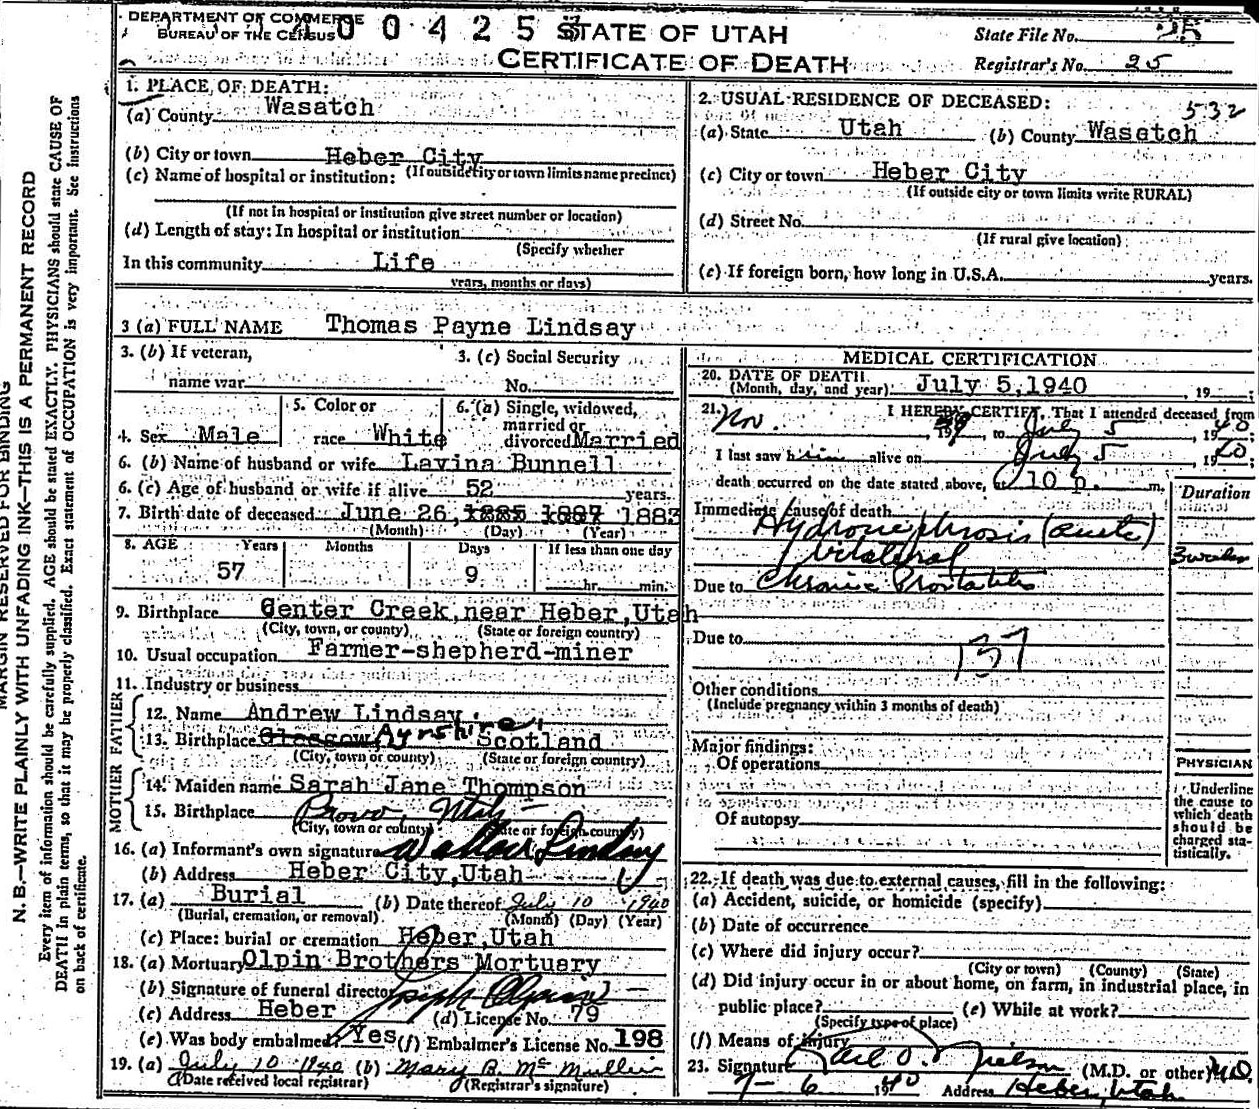 DEPARTMENT OF COMMERCE
BUREAU OF THE CENSUS
0 0 4 2 5
STATE OF UTAH
CERTIFICATE OF DEATH
State File No. 25
Registrar's No. 25
1. PLACE OF DEATH:
(a) County Wasatch
(b) City or town Heber City
(If outside city or town limits name precinct)
(c) Name of hospital or institution:
(If not in hospital or institution give street number or location)
(d) Length of stay: In hospital or institution
(Specify whether
In this community Life
years, months or days)
2. USUAL RESIDENCE OF DECEASED: 532
(a) State Utah (b) County Wasatch
(c) City or town Heber City
(If outside city or town limits write RURAL)
(d) Street No.
(If rural give location)
(e) If foreign born, how long in U.S.A. years.
3 (a) FULL NAME Thomas Payne Lindsay
3. (b) If veteran,
name war
3. (c) Social Security
No.
4. Sex Male
5. Color or
race White
6. (a) Single, widowed,
married or
divorced Married
6. (b) Name of husband or wife Lavina Bunnell
6. (c) Age of husband or wife if alive 52 years.
7. Birth date of deceased June 26, 1885 1887 1883
(Month) (Day) (Year)
8. AGE Years Months Days If less than one day
57 9 hr. min.
9. Birthplace Center Creek, near Heber, Utah
(City, town, or county) (State or foreign country)
10. Usual occupation Farmer-shepherd-miner
11. Industry or business
FATHER
12. Name Andrew Lindsay
13. Birthplace Glasgow Ayrshire, Scotland
(City, town or county) (State or foreign country)
MOTHER
14. Maiden name Sarah Jane Thompson
15. Birthplace Provo, Utah
(City, town or county) (State or foreign country)
16. (a) Informant's own signature Wallace Lindsay
(b) Address Heber City, Utah
17. (a) Burial (b) Date thereof July 10 1940
(Burial, cremation, or removal) (Month) (Day) (Year)
(c) Place: burial or cremation Heber, Utah
18. (a) Mortuary Olpin Brothers Mortuary
(b) Signature of funeral director Joseph Olpin
(c) Address Heber (d) License No. 79
(e) Was body embalmed? Yes (f) Embalmer's License No. 198
19. (a) July 10 1940 (b) Mary B. McMullin
(Date received local registrar) (Registrar's signature)
MEDICAL CERTIFICATION
20. DATE OF DEATH
(Month, day, and year): July 5, 1940, 19 ;
21. I HEREBY CERTIFY, That I attended deceased from
Nov. , 1939, to July 5, 1940;
I last saw him alive on July 5, 1940;
death occurred on the date stated above, at 10 p. m.
Duration
Immediate cause of death
Hydronephrosis (acute)
bilateral
3 weeks
Due to Chronic Prostatitis
Due to
137
Other conditions
(Include pregnancy within 3 months of death)
Major findings:
Of operations
Of autopsy
PHYSICIAN
Underline
the cause to
which death
should be
charged sta-
tistically.
22. If death was due to external causes, fill in the following:
(a) Accident, suicide, or homicide (specify)
(b) Date of occurrence
(c) Where did injury occur?
(City or town) (County) (State)
(d) Did injury occur in or about home, on farm, in industrial place, in
public place? (e) While at work?
(Specify type of place)
(f) Means of injury
23. Signature Karl O. Nielson (M.D. or other) M.D.
7-6 1940 Address Heber, Utah
MARGIN RESERVED FOR BINDING
N. B.—WRITE PLAINLY WITH UNFADING INK—THIS IS A PERMANENT RECORD
Every item of information should be carefully supplied. AGE should be stated EXACTLY. PHYSICIANS should state CAUSE OF
DEATH in plain terms, so that it may be properly classified. Exact statement of OCCUPATION is very important. See instructions
on back of certificate.